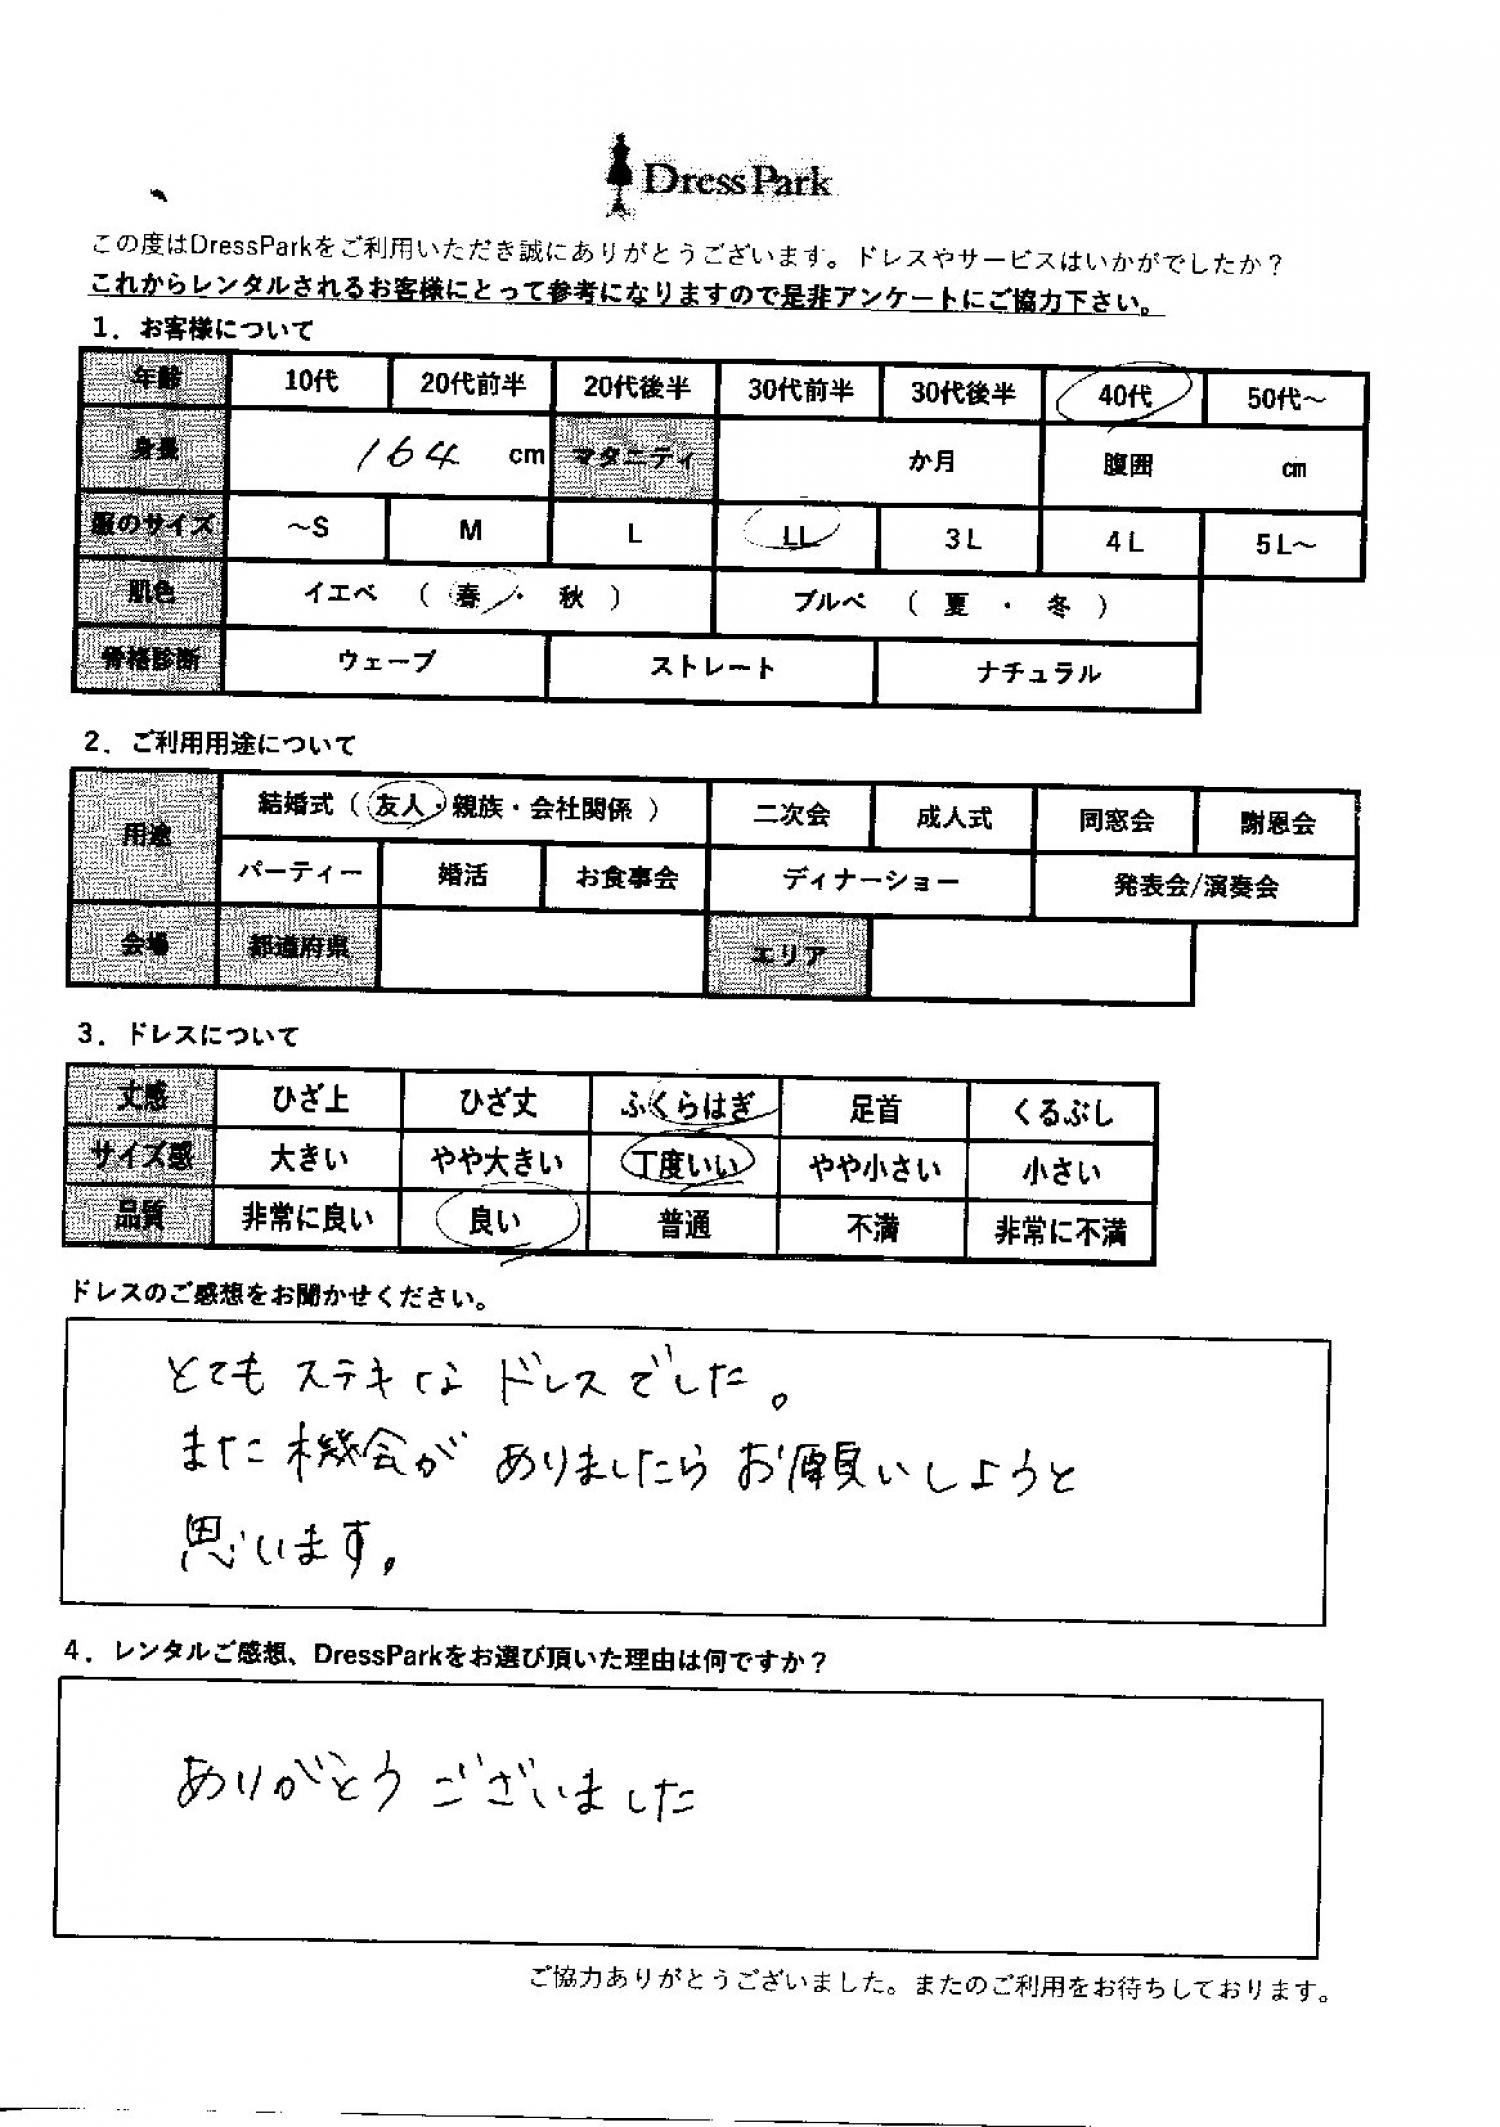 Dress Park
この度はDressParkをご利用いただき誠にありがとうございます。ドレスやサービスはいかがでしたか？
これからレンタルされるお客様にとって参考になりますので是非アンケートにご協力下さい。
1．お客様について
年齢 10代 20代前半 20代後半 30代前半 30代後半 40代 50代～
身長 164 cm マタニティ か月 腹囲 cm
服のサイズ ～S M L LL 3L 4L 5L～
肌色 イエベ （ 春 ・ 秋 ） ブルベ （ 夏 ・ 冬 ）
骨格診断 ウェーブ ストレート ナチュラル
2．ご利用用途について
用途 結婚式（ 友人・親族・会社関係 ） 二次会 成人式 同窓会 謝恩会
パーティー 婚活 お食事会 ディナーショー 発表会/演奏会
会場 都道府県 エリア
3．ドレスについて
丈感 ひざ上 ひざ丈 ふくらはぎ 足首 くるぶし
サイズ感 大きい やや大きい 丁度いい やや小さい 小さい
品質 非常に良い 良い 普通 不満 非常に不満
ドレスのご感想をお聞かせください。
とてもステキなドレスでした。
また機会がありましたらお願いしようと
思います。
4．レンタルご感想、DressParkをお選び頂いた理由は何ですか？
ありがとうございました
ご協力ありがとうございました。またのご利用をお待ちしております。